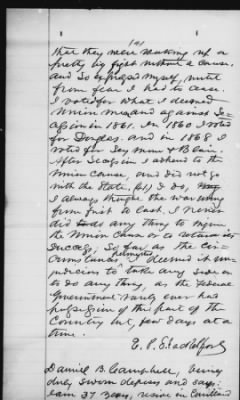 that they were making up a
pretty big fight without a cause
and so expressed myself, until
from fear I had to cease.
I voted for what I deemed
Union men and against Se-
cession in 1861. In 1860 I voted
for Douglas. and in 1868 I
voted for Seymour & Blair.
After Secession I adhered to the
Union Cause, and did not go
with the State. I do,
I always thought the war wrong
from first to last. I never
did do any thing to injure
the Union Cause or to
success, So far as the Cir-
cumstances permitted I deemed it in-
judicious to take any side or
to do any thing, as the federal
Government rarely ever had
possession of this part of the
Country but few days at a
time.
Daniel B. Campbell, being
duly sworn deposes and says:
I am 37 years, reside in